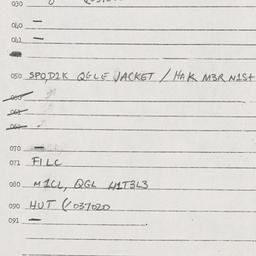 030
040 —
041 —
050 SPO,D2K QGLE JACKET / HAK M3R N1S+
060
061
062
070 —
071 FILC
080 M1CL, QGL H1T3L3
090 HUT (/037020
091 —